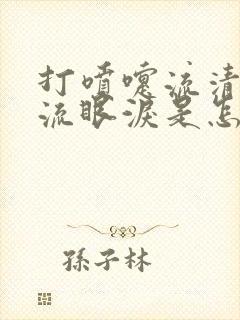 打喷嚏流清
流眼淚是怎
孫子林